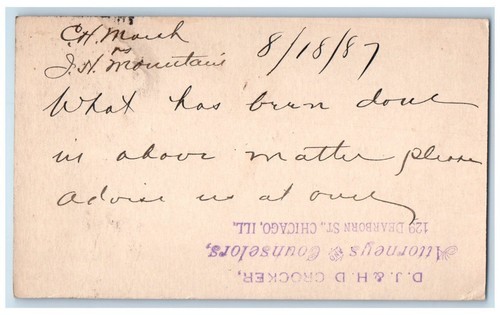 C.H. Marsh
vs
J.H. Mountain
8/18/87
What has been done
in above matter please
advise us at once
D. J. & H. D CROCKER,
Attorneys & Counselors,
129 DEARBORN ST., CHICAGO, ILL.